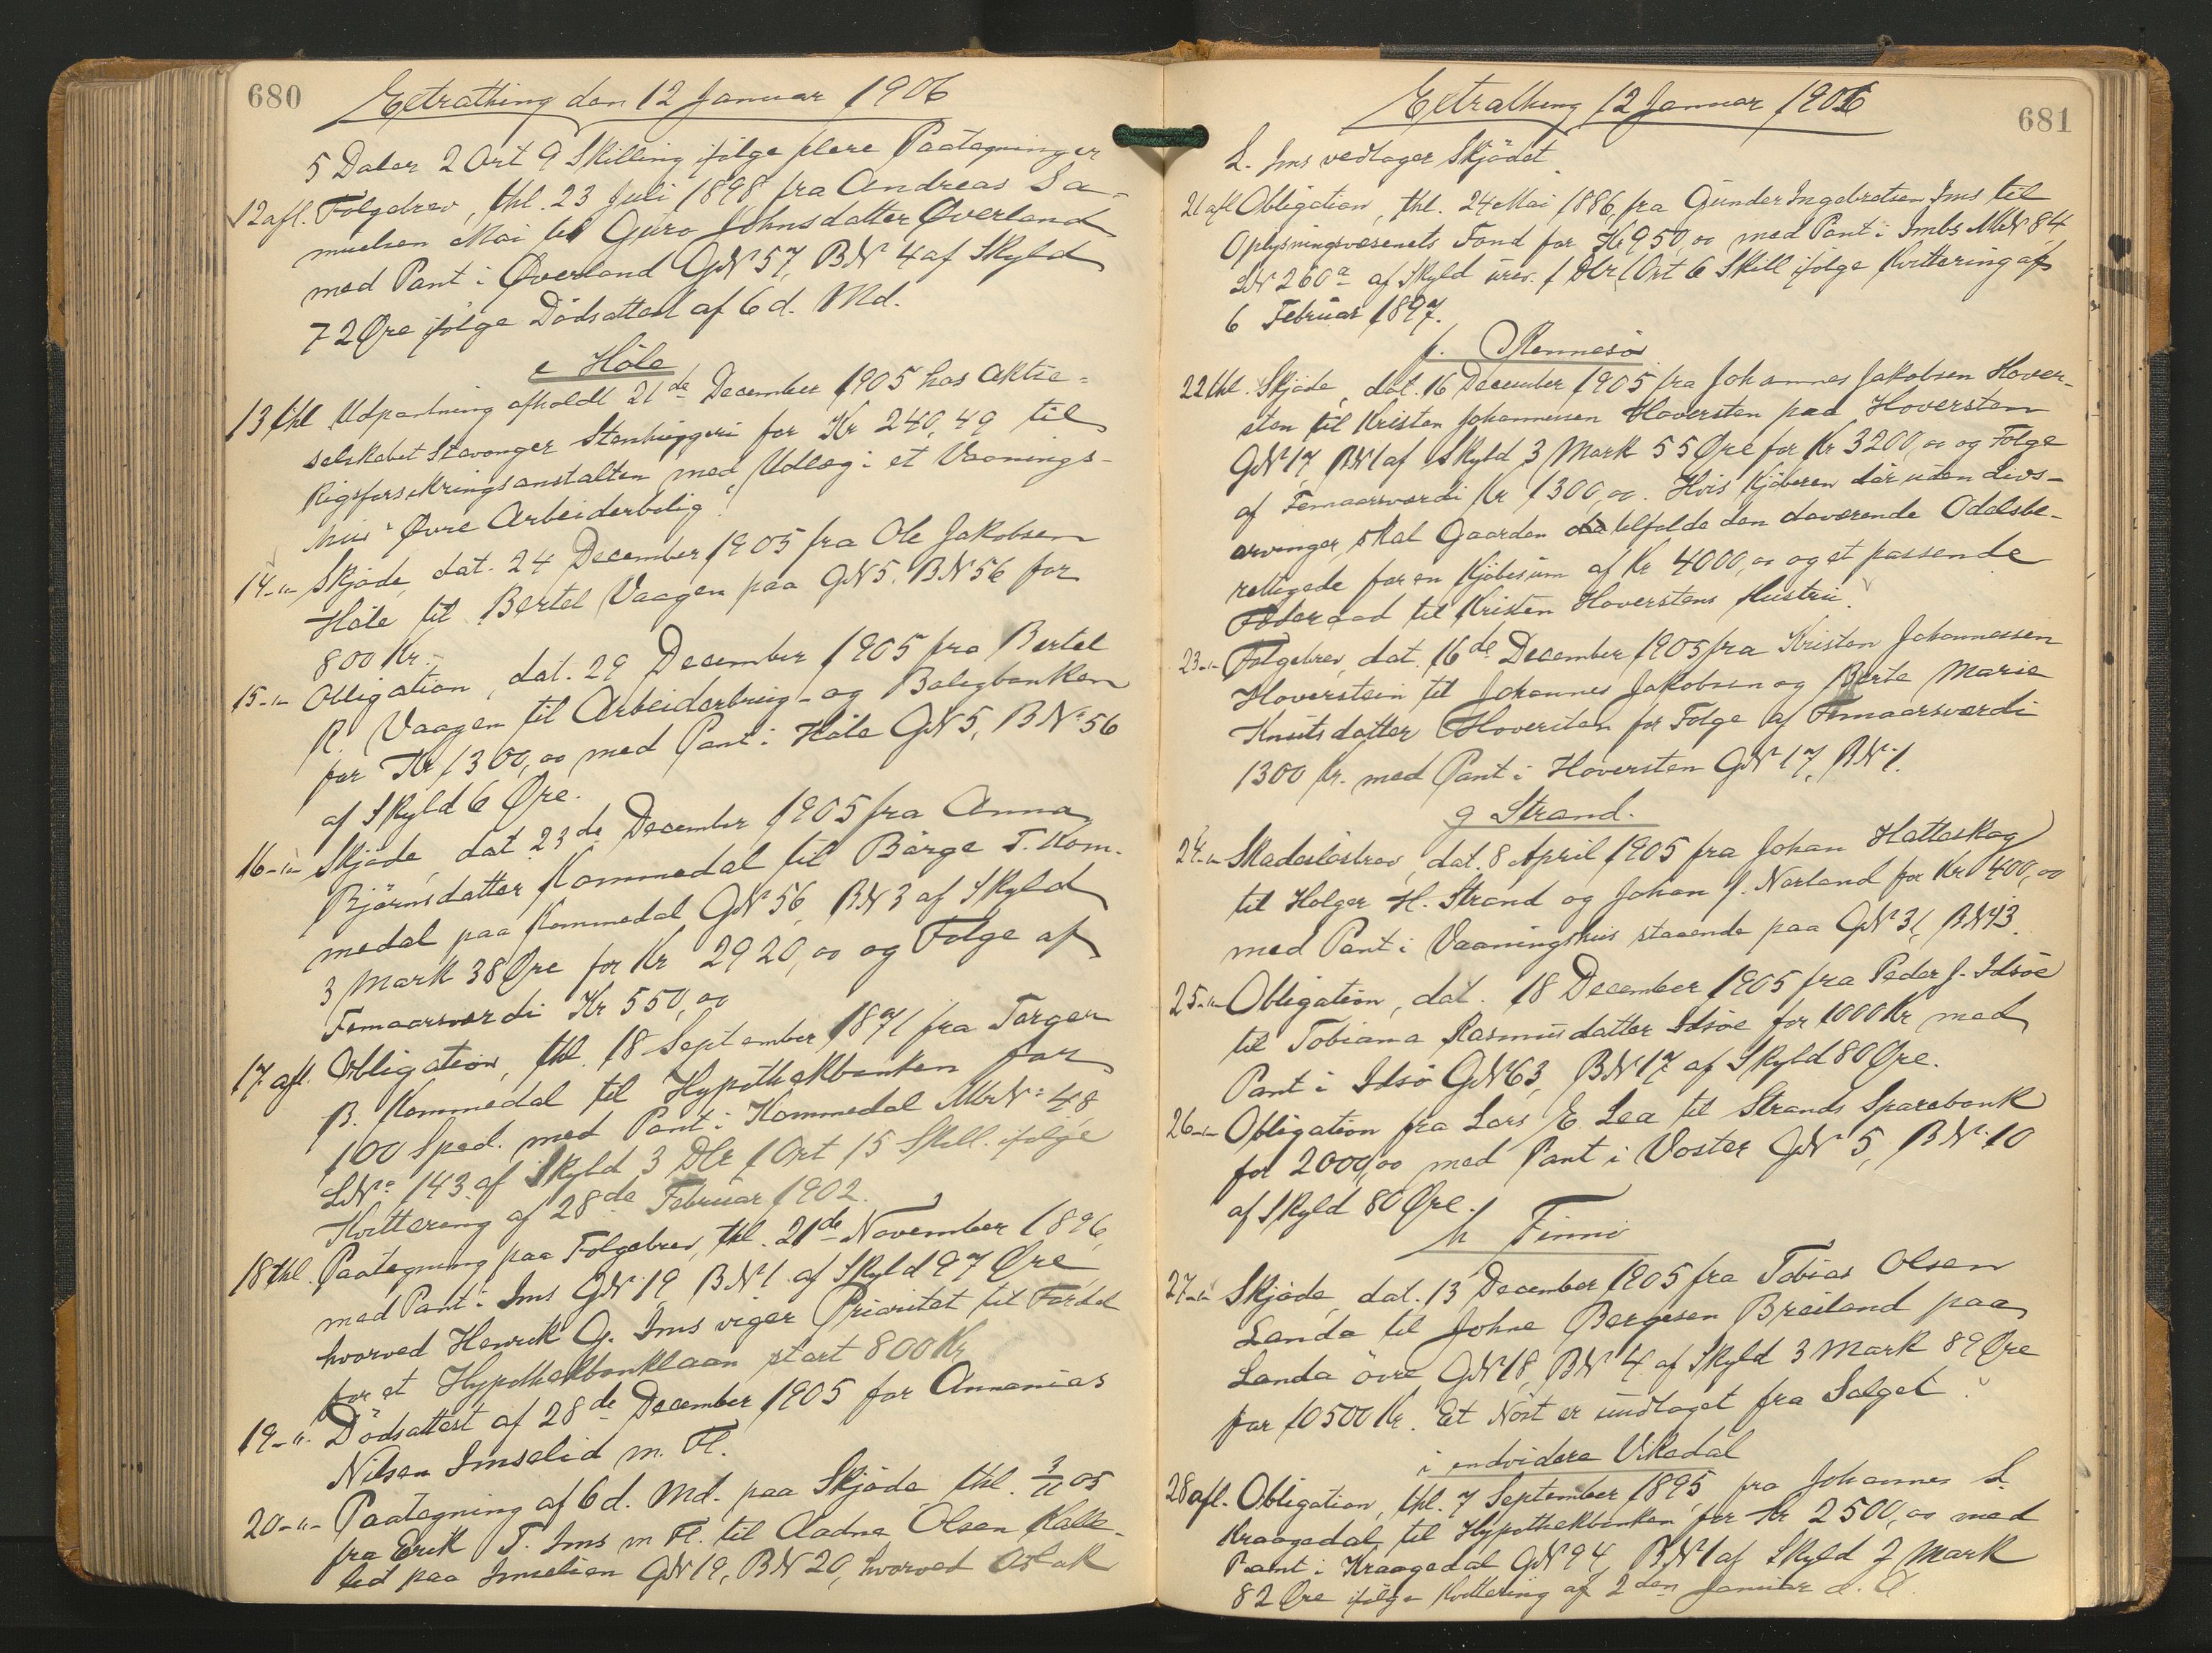 680
Extrathing den 12 Januar 1906
5 Daler 2 Ort 9 Skilling ifølge flere Paategninger
12 afl. Følgebrev, thl. 23 Juli 1898 fra Andreas Sa-
muelsen Mai til Guro Johnsdatter Øverland
med Pant i Øverland GN 57, BN 4 af Skyld
72 Øre ifølge Dödsattest af 6 d. Md.
e Høle
13 thl Udpantning afholdt 21de December 1905 hos Aktie-
selskabet Stavanger Stenhuggeri for Kr 240,49 til
Rigsforsikringsanstalten med Udlæg i et Vaanings-
hus "Øvre Arbeiderbolig".
14 -"- Skjøde, dat. 24 December 1905 fra Ole Jakobsen
Høle til Bertel Vaagen paa GN 5, BN 56 for
800 Kr.
15 -"- Obligation, dat. 29 December 1905 fra Bertel
R. Vaagen til Arbeiderbrug- og Boligbanken
for Kr 1300,00 med Pant i Høle GN 5, BN 56
af Skyld 6 Øre.
16 -"- Skjøde, dat 23de December 1905 fra Anna
Bjørnsdatter Kommedal til Børge T. Kom-
medal paa Kommedal GN 56, BN 3 af Skyld
3 Mark 38 Øre for Kr 2920,00 og Følge af
Femaarsværdi Kr 550,00
17 afl. Obligation, thl. 18 September 1871 fra Torger
B. Kommedal til Hypothekbanken for
100 Sped. med Pant i Kommedal MN: 48
LN: 143 af Skyld 3 Dlr 1 Ort 15 Skill. ifølge
Kvittering af 28de Februar 1902.
18 thl. Paategning paa Følgebrev, thl. 21de November 1896,
med Pant i Ims GN 19, BN 1 af Skyld 97 Øre
hvorved Henrik G. Ims viger Prioritet til Fordel
for et Hypothekbanklaan stort 800 Kr
19 -"- Dödsattest af 28de December 1905 for Annanias
Nilsen Imselid m. Fl.
20 -"- Paategning af 6 d. Md. paa Skjøde thl. 3/11 05
fra Erik T. Ims m Fl. til Aadne Olsen Kalle-
lid paa Imselien GN 19, BN 20, hvorved Aslak
Extrathing 12 Januar 1906
681
L. Ims vedtager Skjödet.
21 afl Obligation, thl. 24 Mai 1886, fra Gunder Ingebretsen Ims til
Oplysningsvæsenets Fond for Kr 950,00 med Pant i Imbs MN 84
LN 260a af Skyld urev. 1 Dlr 1 Ort 6 Skill ifølge Kvittering af
6 Februar 1897.
f. Rennesø
22 thl. Skjøde, dat. 16 December 1905 fra Johannes Jakobsen Hover-
sten til Kristen Johannessen Hoversten paa Hoversten
GN 17, BN 1 af Skyld 3 Mark 55 Øre for Kr 3200,00 og Følge
af Femaarsværdi Kr 1300,00. Hvis Kjøberen dør uden Livs-
arvinger, skal Gaarden tilfalde den daværende Odelsbe-
rettigede for en Kjøbesum af Kr 4000,00 og et passende
Føderaad til Kristen Hoverstens Hustru.
23 -"- Følgebrev, dat. 16de December 1905 fra Kristen Johannessen
Hoverstein til Johannes Jakobsen og Berte Marie
Knutsdatter Hoversten for Følge af Femaarsværdi
1300 Kr. med Pant i Hoversten GN 17, BN 1.
g Strand.
24 -"- Skadesløsbrev, dat. 8 April 1905 fra Johan Hatteskog
til Holger H. Strand og Johan J. Nerland for Kr 400,00
med Pant i Vaaningshus staaende paa GN 31, BN 43.
25 -"- Obligation, dat. 18 December 1905 fra Peder J. Idsøe
til Tobiana Rasmusdatter Idsøe for 1000 Kr med
Pant i Idsø GN 63, BN 17 af Skyld 80 Øre.
26 -"- Obligation fra Lars E. Lea til Strands Sparebank
for 2000,00 med Pant i Voster GN 5, BN 10
af Skyld 80 Øre.
h Finnø
27 -"- Skjøde dat. 13 December 1905 fra Tobias Olsen
Landa til Johne Bergesen Breiland paa
Landa övre GN 18, BN 4 af Skyld 3 Mark 89 Øre
for 10500 Kr. Et Nöst er undtaget fra Salget.
i endvidere Vikedal
28 afl. Obligation, thl. 7 September 1895 fra Johannes L.
Kraagedal til Hypothekbanken for Kr 2500,00 med
Pant i Kraagedal GN 94, BN 1 af Skyld 7 Mark
82 Øre ifølge Kvittering af 2den Januar d. A.